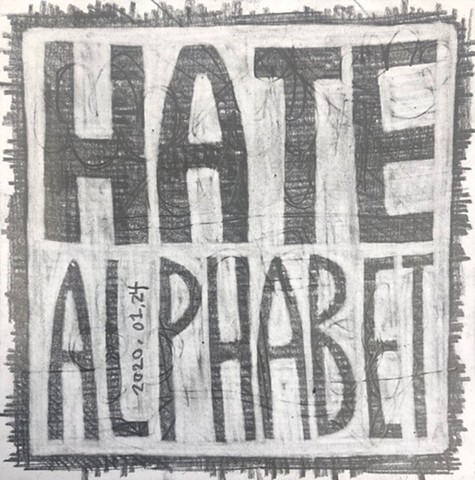 HATE
ALPHABET
2020.01.24